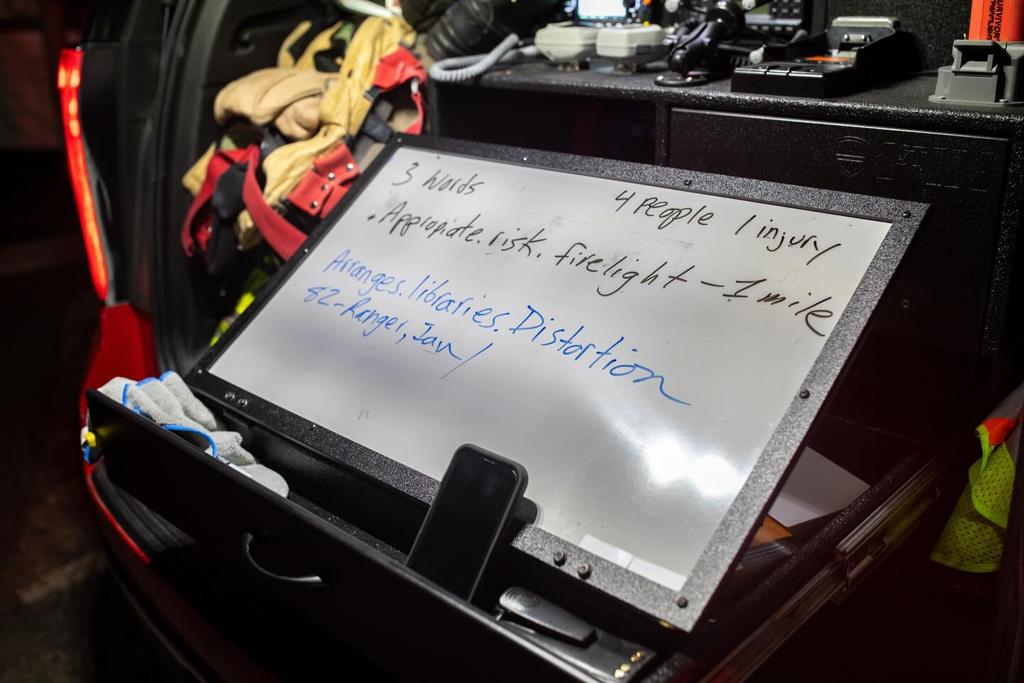 3 Words
4 People 1 injury
. Appropiate. risk. firelight - 1 mile
Arranges. libraries. Distortion
82-Ranger, Jan/